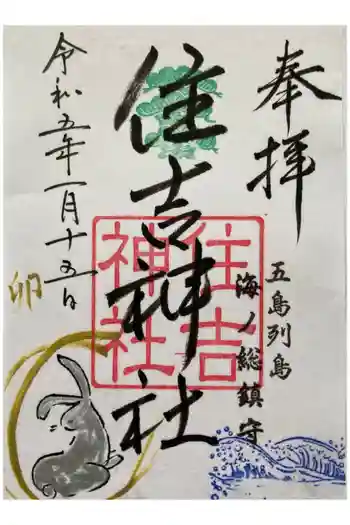 奉拝
五島列島
海ノ総鎮守
住吉神社
住吉神社
令和五年一月十五日
卯